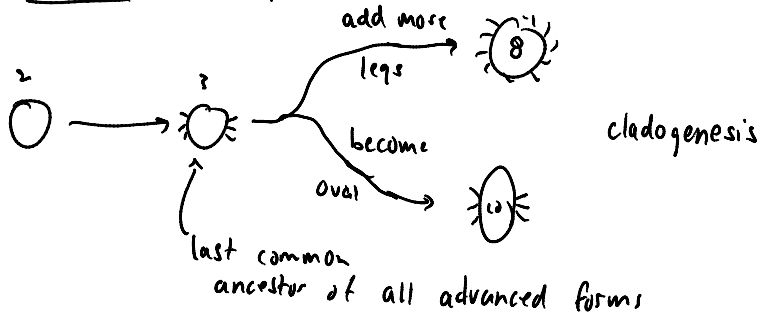 add more
legs
8
2
3
become
oval
10
cladogenesis
last common
ancestor of all advanced forms